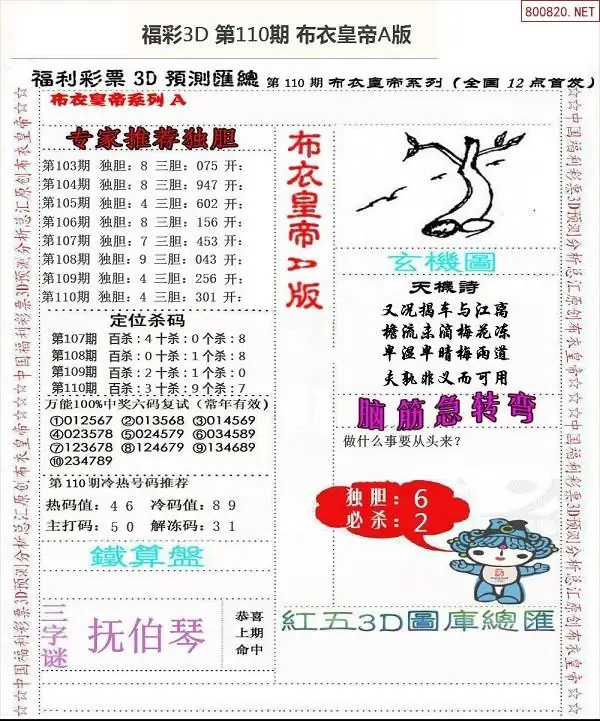 800820.NET
福彩3D 第110期 布衣皇帝A版
福利彩票 3D 預測匯總 第 110 期 布衣皇帝系列（全国 12 点首发）
布衣皇帝系列 A
专家推荐独胆
第103期 独胆: 8 三胆: 075 开:
第104期 独胆: 8 三胆: 947 开:
第105期 独胆: 4 三胆: 602 开:
第106期 独胆: 8 三胆: 156 开:
第107期 独胆: 7 三胆: 453 开:
第108期 独胆: 9 三胆: 043 开:
第109期 独胆: 4 三胆: 256 开:
第110期 独胆: 4 三胆: 301 开:
定位杀码
第107期 百杀: 4 十杀: 0 个杀: 8
第108期 百杀: 0 十杀: 1 个杀: 8
第109期 百杀: 2 十杀: 1 个杀: 0
第110期 百杀: 3 十杀: 9 个杀: 7
万能100%中奖六码复试（常年有效）
①012567 ②013568 ③014569
④023578 ⑤024579 ⑥034589
⑦123678 ⑧124679 ⑨134689
⑩234789
第 110 期冷热号码推荐
热码值: 4 6 冷码值: 8 9
主打码: 5 0 解冻码: 3 1
鐵算盤
三字谜
抚伯琴
恭喜
上期
命中
布衣皇帝A版
玄機圖
天機詩
又况揭车与江离
檐流未滴梅花冻
半湿半晴梅雨道
夫孰非义而可用
脑筋急转弯
做什么事要从头来?
独胆: 6
必杀: 2
紅五3D圖庫總匯
☆☆中国福利彩票3D预测分析总汇原创布衣皇帝☆☆
☆☆中国福利彩票3D预测分析总汇原创布衣皇帝☆☆